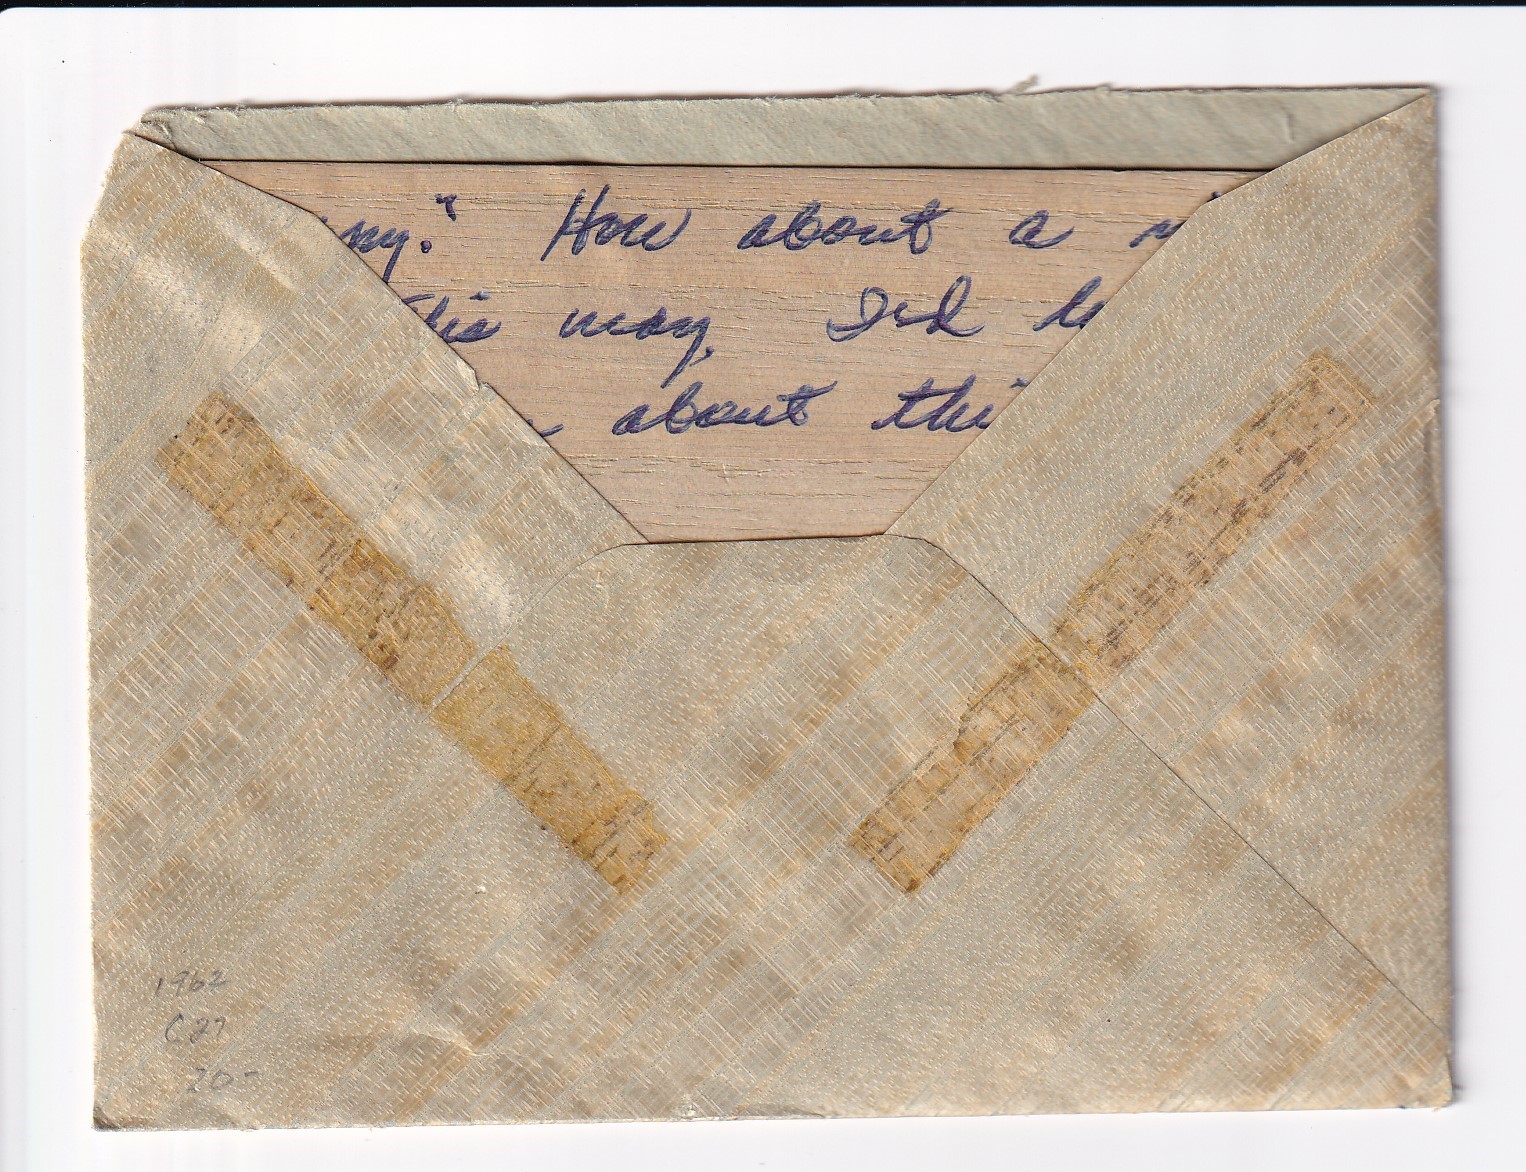 ny." How about a
this way. I'd
about thi
1962
C 27
20-